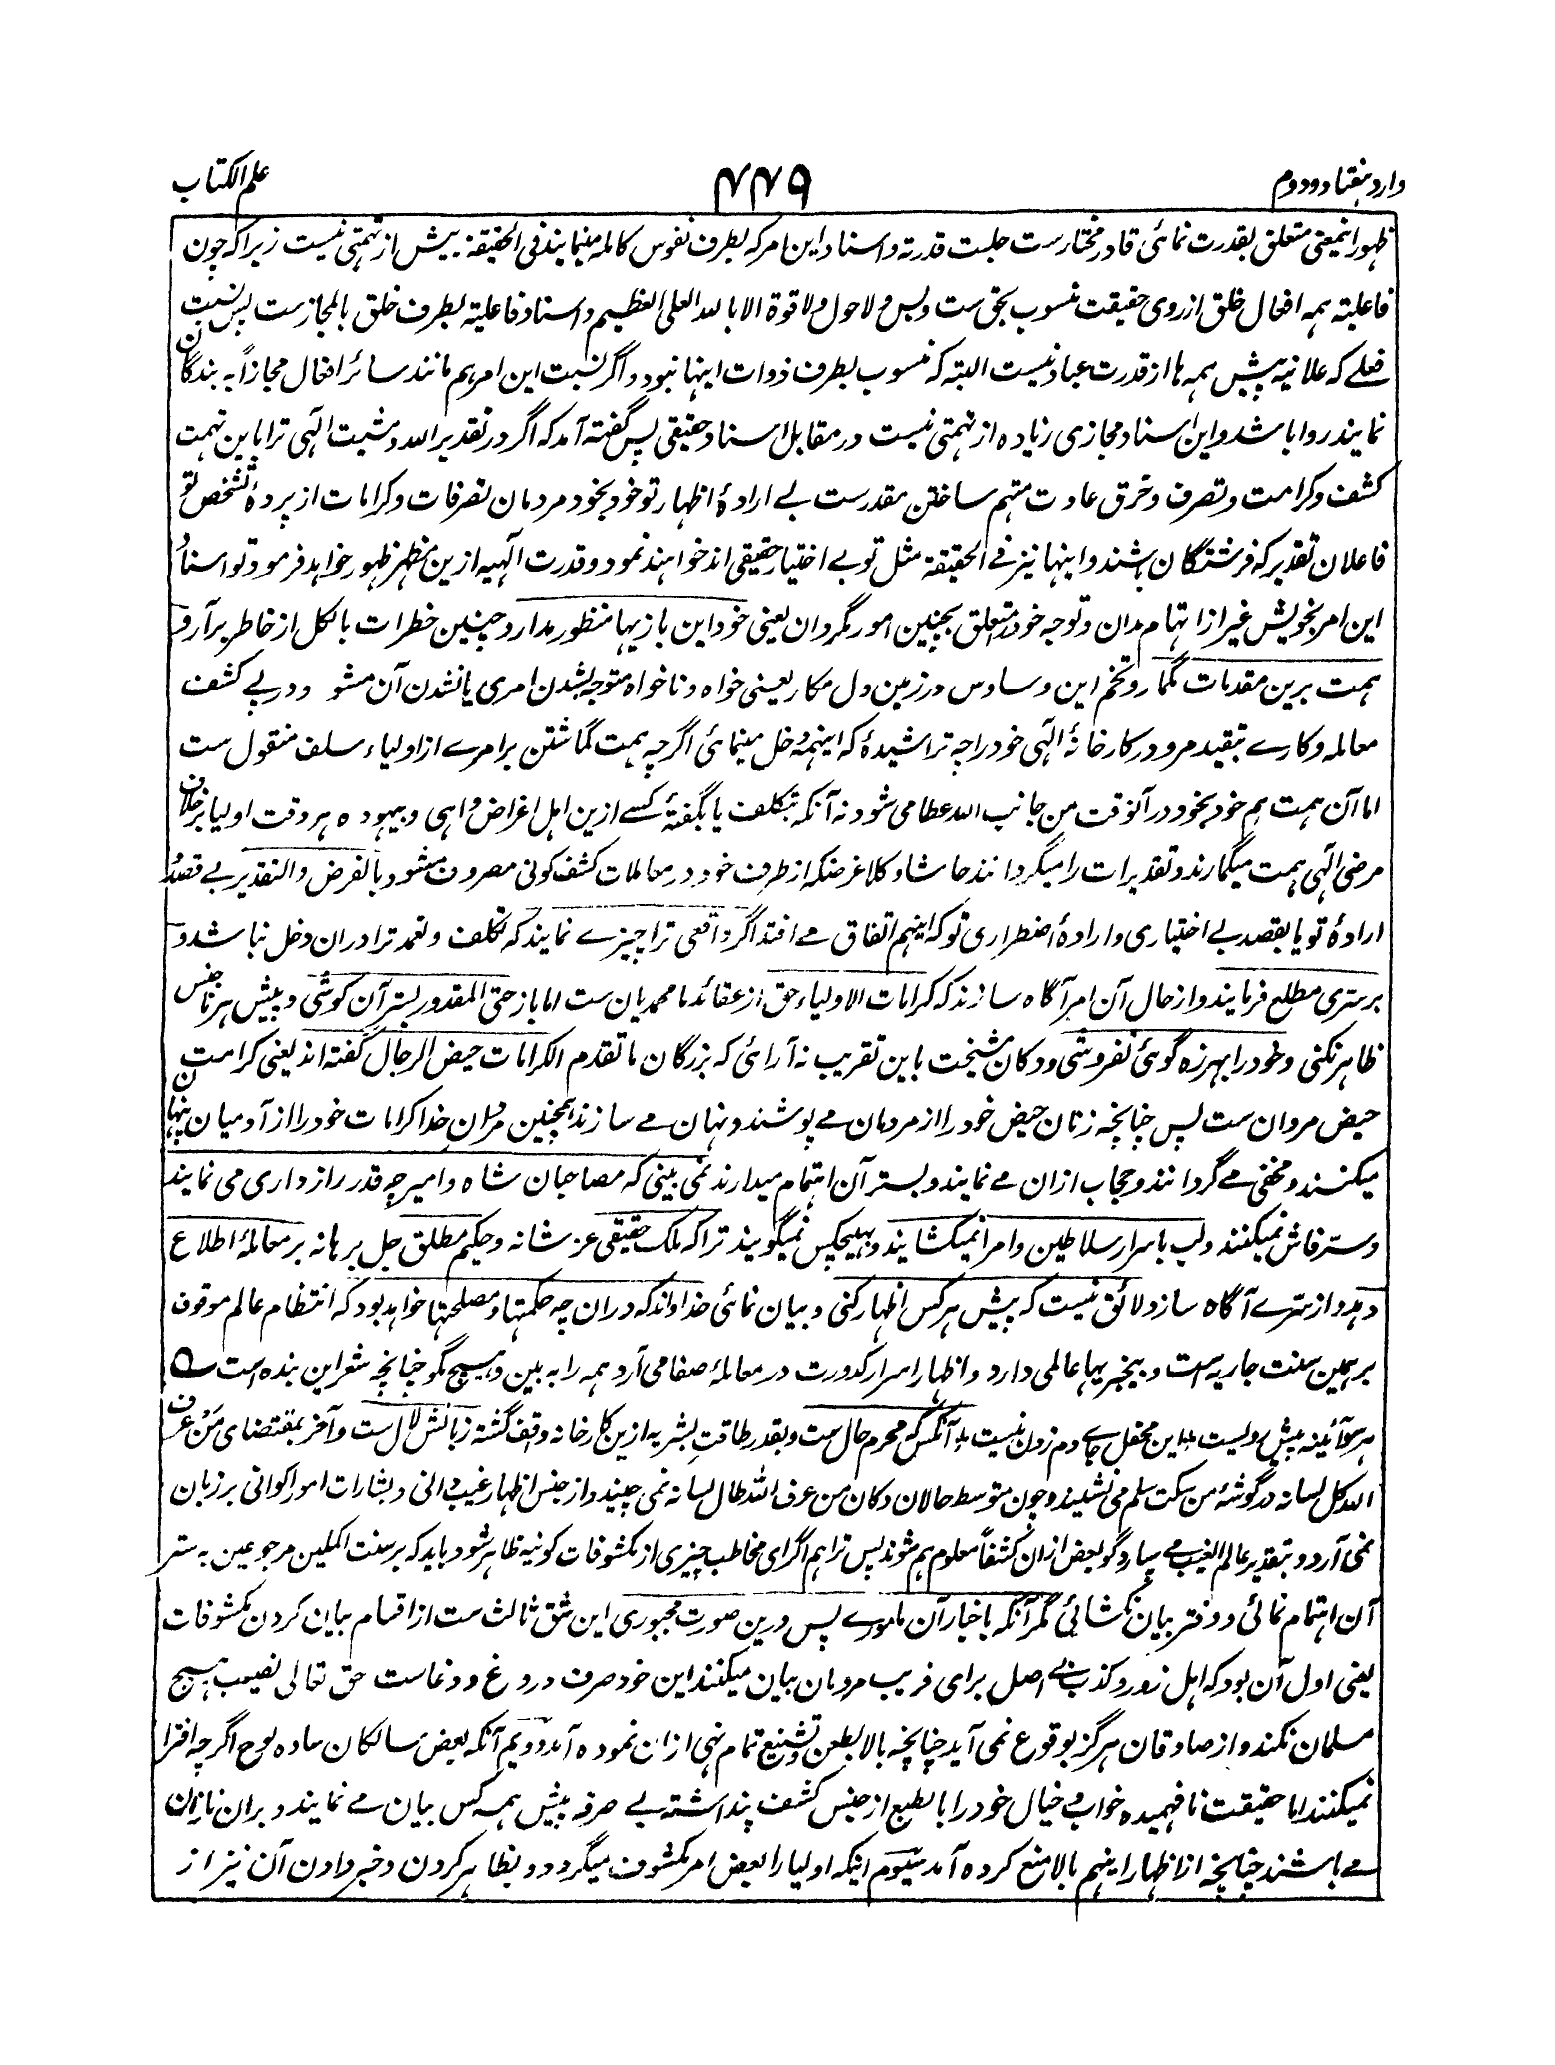 وارد ہفتاد و دوم ۴۴۹ علم الکتاب
ظہور اینمعنی متعلق بقدرت نمائی قادر مختارست جلت قدرته و اسناد این امر که بطرف نفوس کامله مینمایند فی الحقیقة بیش از تهمتی نیست زیرا که چون
فاعلیة همه افعال خلق از روی حقیقت منسوب بحق ست و بس و لا حول و لا قوة الا بالله العلی العظیم و اسناد فاعلیة بطرف خلق بالمجاز ست پس نسبت
فعلے که علانیه پیش همه ها از قدرت عباد نیست البته که منسوب بطرف ذوات اینها نبود و اگر نسبت این امر هم مانند سائر افعال مجازاً به بندگان
نمایند روا باشد و این اسناد مجازی زیاده از تهمتی نیست در مقابل اسناد حقیقی پس گفته آمد که اگر در تقدیر الله و مشیت الٓهی ترا باین تهمت
کشف و کرامت و تصرف و خرق عادت متهم ساختن مقدر ست بے ارادهٔ اظهار تو خود بخود مردمان تصرفات و کرامات از پردهٔ تشخص تو
فاعلان تقدیر که فرشتگان باشند و اینها نیز فی الحقیقة مثل تو بے اختیار حقیقی اند خواهند نمود و قدرت الٓهیه ازین مظهر ظهور خواهد فرمود تو اسناد
این امر بخویش غیر از اتهام مدان و توجه خود را متعلق بچنین امور مگردان یعنی خود این بازیها منظور مدار و چنین خطرات بالکل از خاطر برآر و
همت برین مقدمات مگمار و تخم این وساوس در زمین دل مکار یعنی خواه و ناخواه متوجه بشدن امری یا نشدن آن مشو و در پے کشف
معامله و کارے بتقید مرو در کارخانهٔ الٓهی خود را چه تراشیدهٔ که اینهمه دخل مینمائی اگرچه همت گماشتن بر امرے از اولیاء سلف منقول ست
اما آن همت هم خود بخود در آنوقت من جانب الله عطا می شود نه آنکه بتکلف یا بگفتهٔ کسے ازین اهل اغراض واهی و بیهوده هر وقت اولیا برخلاف
مرضی الٓهی همت میگمارند و تقدیرات را میگردانند حاشا و کلا غرضکه از طرف خود در معاملات کشف کونی مصروف مشو و بالفرض و التقدیر بے قصد و
ارادهٔ تو یا بقصد بے اختیاری و ارادهٔ اضطراری تو که اینهم اتفاق مے افتد اگر واقعی ترا چیزے نمایند که تکلف و تعمد ترا دران دخل نباشد و
بر سّری مطلع فرمایند و از حال آن امر آگاه سازند که کرامات الاولیاء حق از عقائد ما محمدیان ست اما باز حتی المقدور بستر آن کوشی و پیش هر ناجنس
ظاهر نکنی و خود را بهرزه گوئی نفروشی و دکان مشیخت باین تقریب نه آرائی که بزرگان ما تقدم الکرامات حیض الرجال گفته اند یعنی کرامت
حیض مردان ست پس چنانچه زنان حیض خود را از مردمان مے پوشند و نهان مے سازند همچنین مردان خدا کرامات خود را از آدمیان پنهان
میکنند و مخفی مے گردانند و حجاب ازان مے نمایند و بستر آن اهتمام میدارند نمی بینی که مصاحبان شاه و امیر چه قدر رازداری می نمایند
و سّر فاش نمیکنند و لب باسرار سلاطین و امرا نمیکشایند و بهیچکس نمیگویند ترا که ملک حقیقی عز شانه و حکیم مطلق جل برهانه بر معاملهٔ اطلاع
دهد و از سّرے آگاه سازد لائق نیست که پیش هر کس اظهار کنی و بیان نمائی خدا داند که دران چه حکمتها و مصلحتها خواهد بود که انتظام عالم موقوف
بر همین سنت جاریه است و بیخبریها عالمی دارد و اظهار اسرار کدورت در معاملهٔ صفا می آرد همه را به بین و هیچ مگو چنانچه شعر این بنده است ؎
هر سو آئینه پیش رویست ٭ این محفل جاے دم زدن نیست ٭ آنکس که محرم حال ست و بقدر طاقت بشریه ازین کارخانه واقف گشته زبانش لال ست و آخر بمقتضای من عرف
الله کل لسانه در گوشهٔ من سکت سلم می نشیند و چون متوسط حالان دکان من عرف الله طال لسانه نمی چیند و از جنس اظهار غیب دانی و بشارات امور اکوانی بر زبان
نمی آرد و بتقدیر عالم الغیب مے سپارد گو بعض ازان کشفاً معلوم هم شوند پس تراهم اگر ای مخاطب چیزی از مکشوفات کونیه ظاهر شود باید که بر سنت اکملین مرجوعین به ستر
آن اهتمام نمائی و دفتر بیان نکشائی مگر آنکه باخبار آن مامورے پس درین صورت مجبوری این شق ثالث ست از اقسام بیان کردن مکشوفات
یعنی اول آن بود که اهل زور و کذب بے اصل برای فریب مردمان بیان میکنند این خود صرف دروغ و دغاست حق تعالی نصیب هیچ
مسلمان نکند و از صادقان هرگز بوقوع نمی آید چنانچه بالا بطعن و تشنیع تمام نهی ازان نموده آمد و دویم آنکه بعض سالکان ساده لوح اگرچه افترا
نمیکنند اما حقیقت نافهمیده خواب و خیال خود را بالطبع از جنس کشف پنداشته بے صرفه پیش همه کس بیان مے نمایند و بران نازان
مے باشند چنانچه از اظهار اینهم بالا منع کرده آمد سیوم اینکه اولیا را بعض امر مکشوف میگردد و بظاهر کردن و خبر دادن آن نیز از